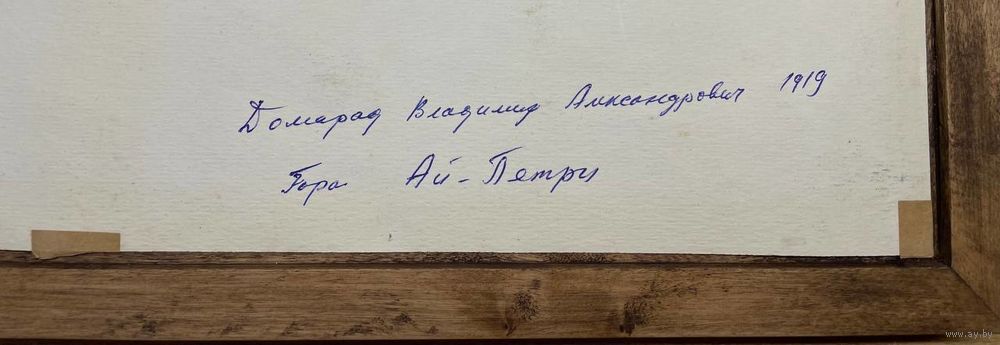 Домарад Владимир Александрович 1919
Гора Ай-Петри
www.ay.by